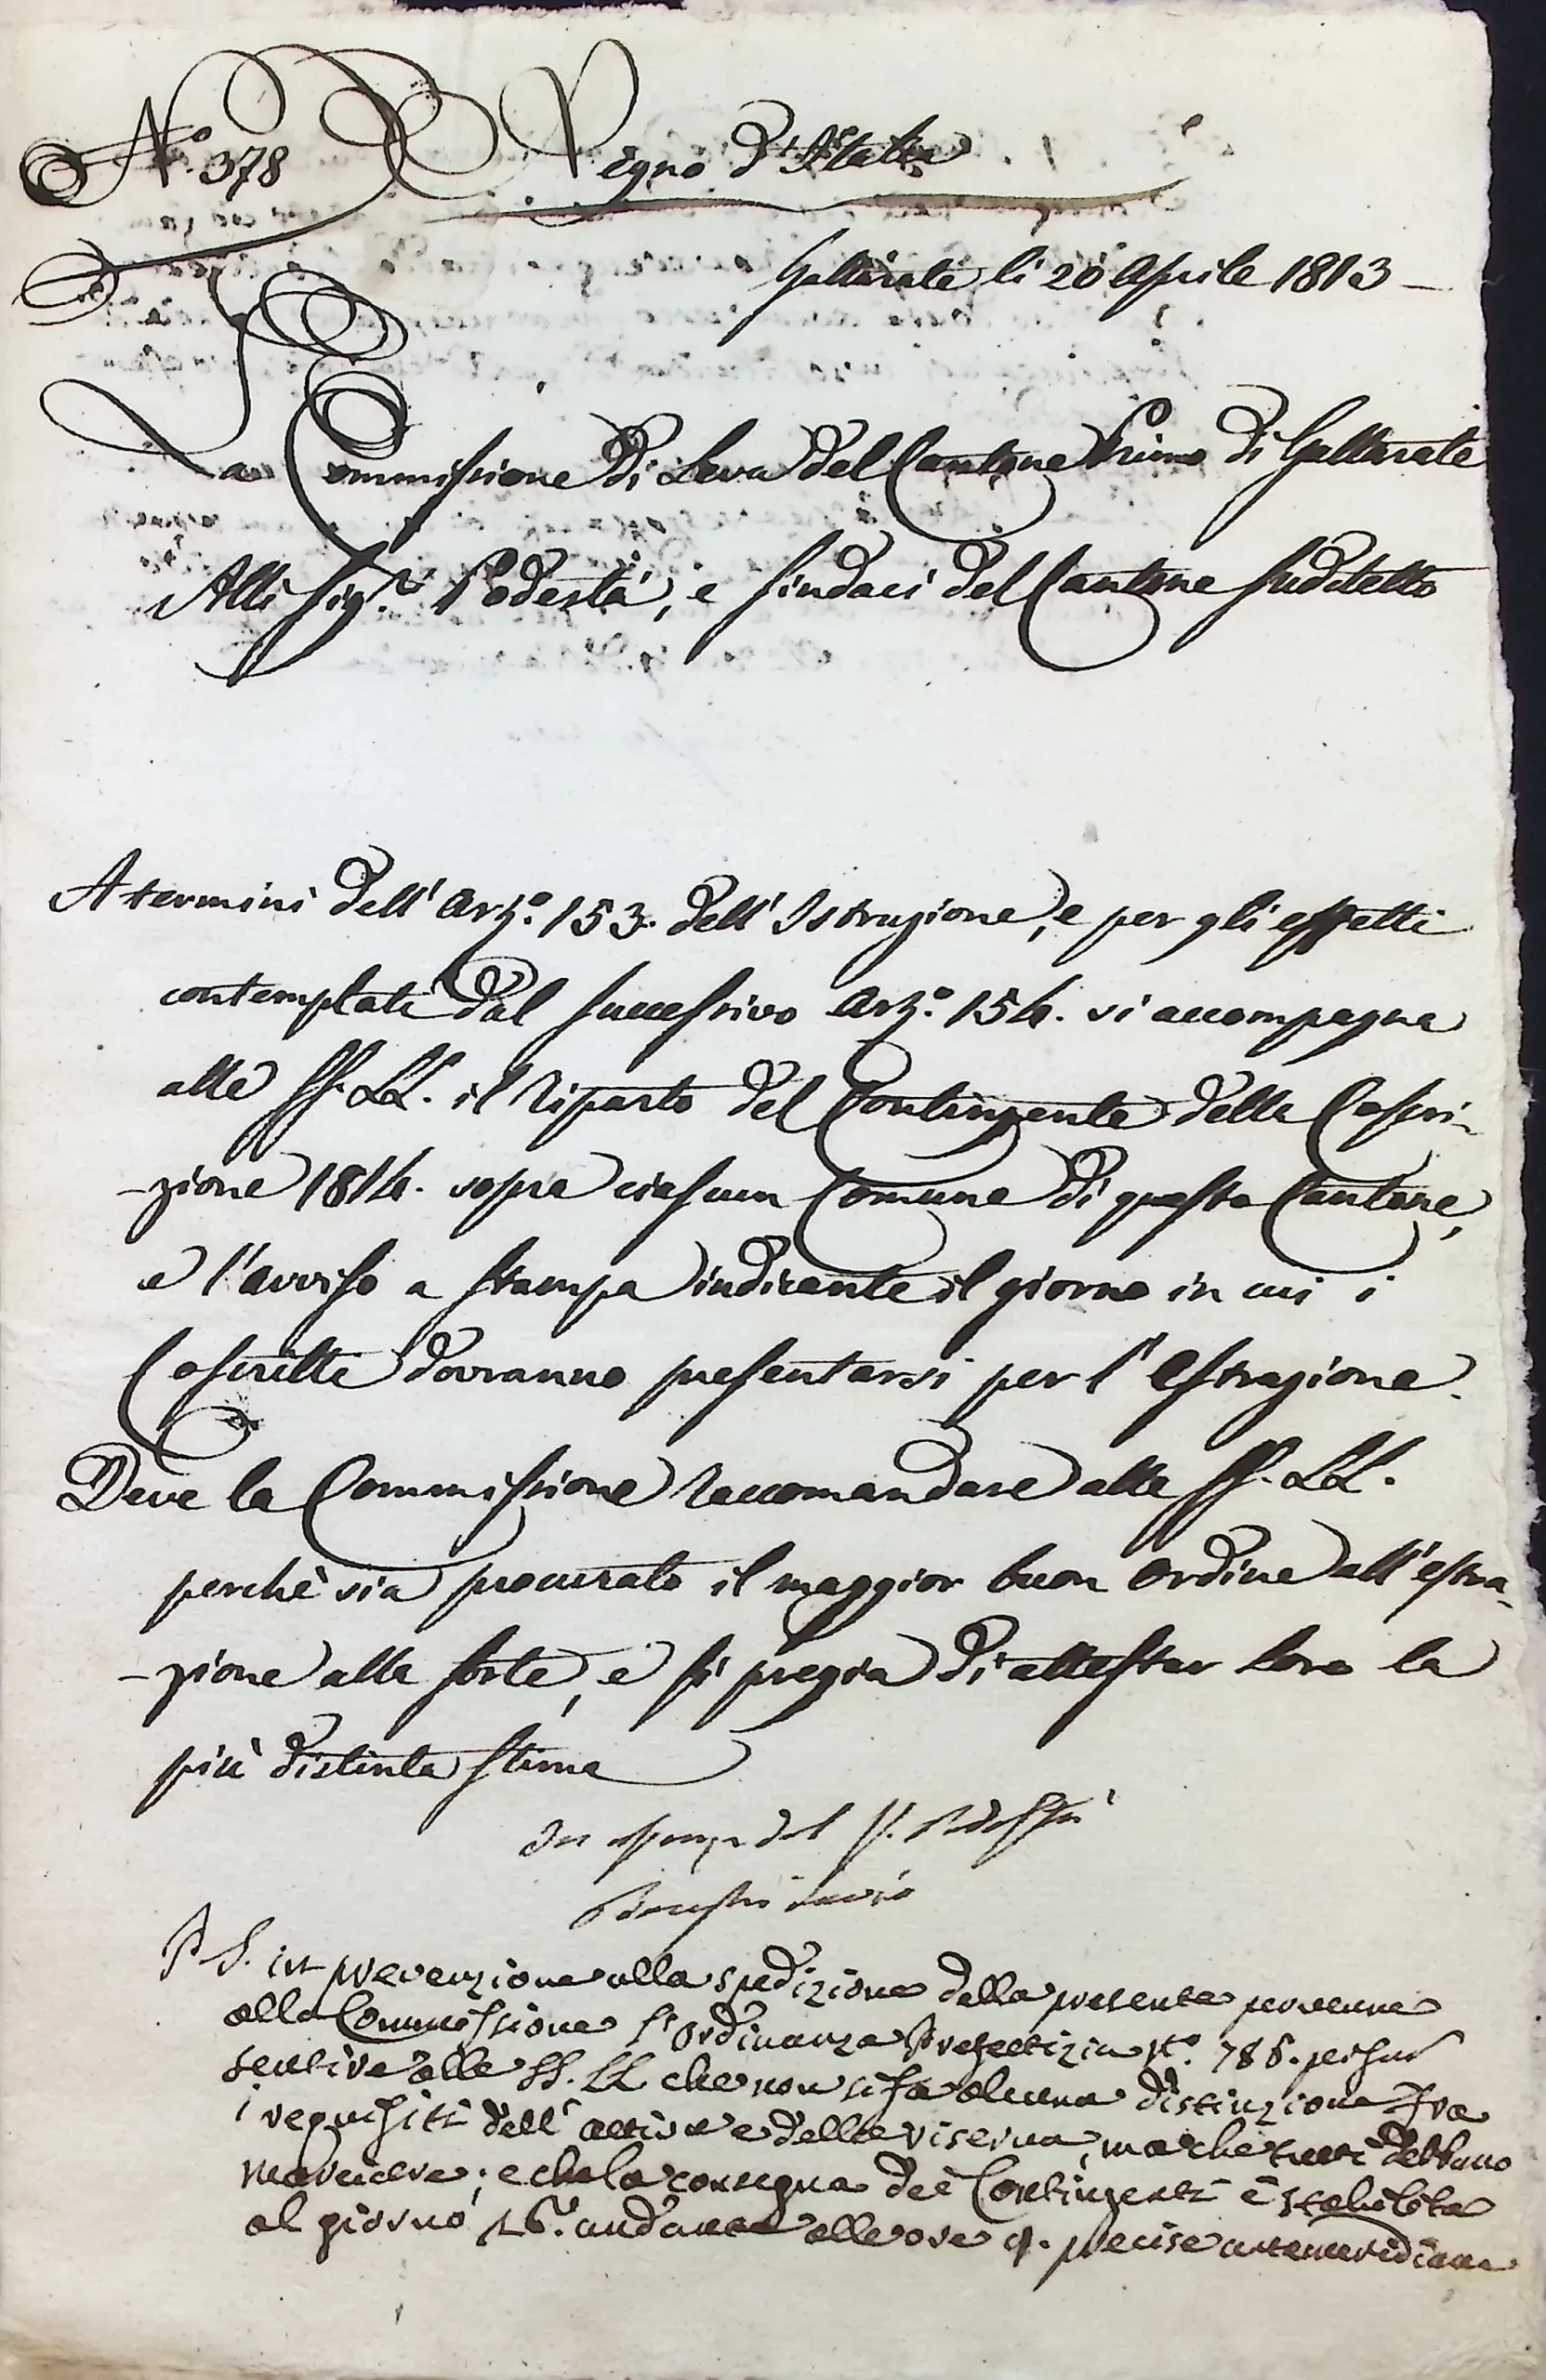 N.º 378 Regno d'Italia
Gallarate li 20 Aprile 1813 -
La Commissione di Leva del Cantone Primo di Gallarate
Alli Sig.ri Podestà, e Sindaci del Cantone Suddetto
A termini dell' Art.º 153. dell' Istruzione, e per gli effetti
contemplati dal successivo Art.º 154. si accompagna
alle SS. LL. il Riparto del Contingente della Coscri-
-zione 1814. sopra ciascun Comune di questo Cantone,
e l'avviso a stampa indicante il giorno in cui i
Coscritti dovranno presentarsi per l' Estrazione.
Deve la Commissione Raccomandare alle SS. LL.
perchè sia procurato il maggior buon ordine all' estra-
-zione alla sorte, e si pregia di attestar Loro la
più distinta stima
In del S. Podestà
P.S. in prevenzione alla spedizione della presente pervenne
alla Commissione l'Ordinanza Prefettizia N.º 785. per far
sentire alle SS. LL. che non si fa alcuna distinzione fra
i requisiti dell' attiva e della riserva, ma che tutti debbano
marciare; e che la consegna dei Contingenti è stabilita
al giorno 26. andante alle ore 9. precise antemeridiane